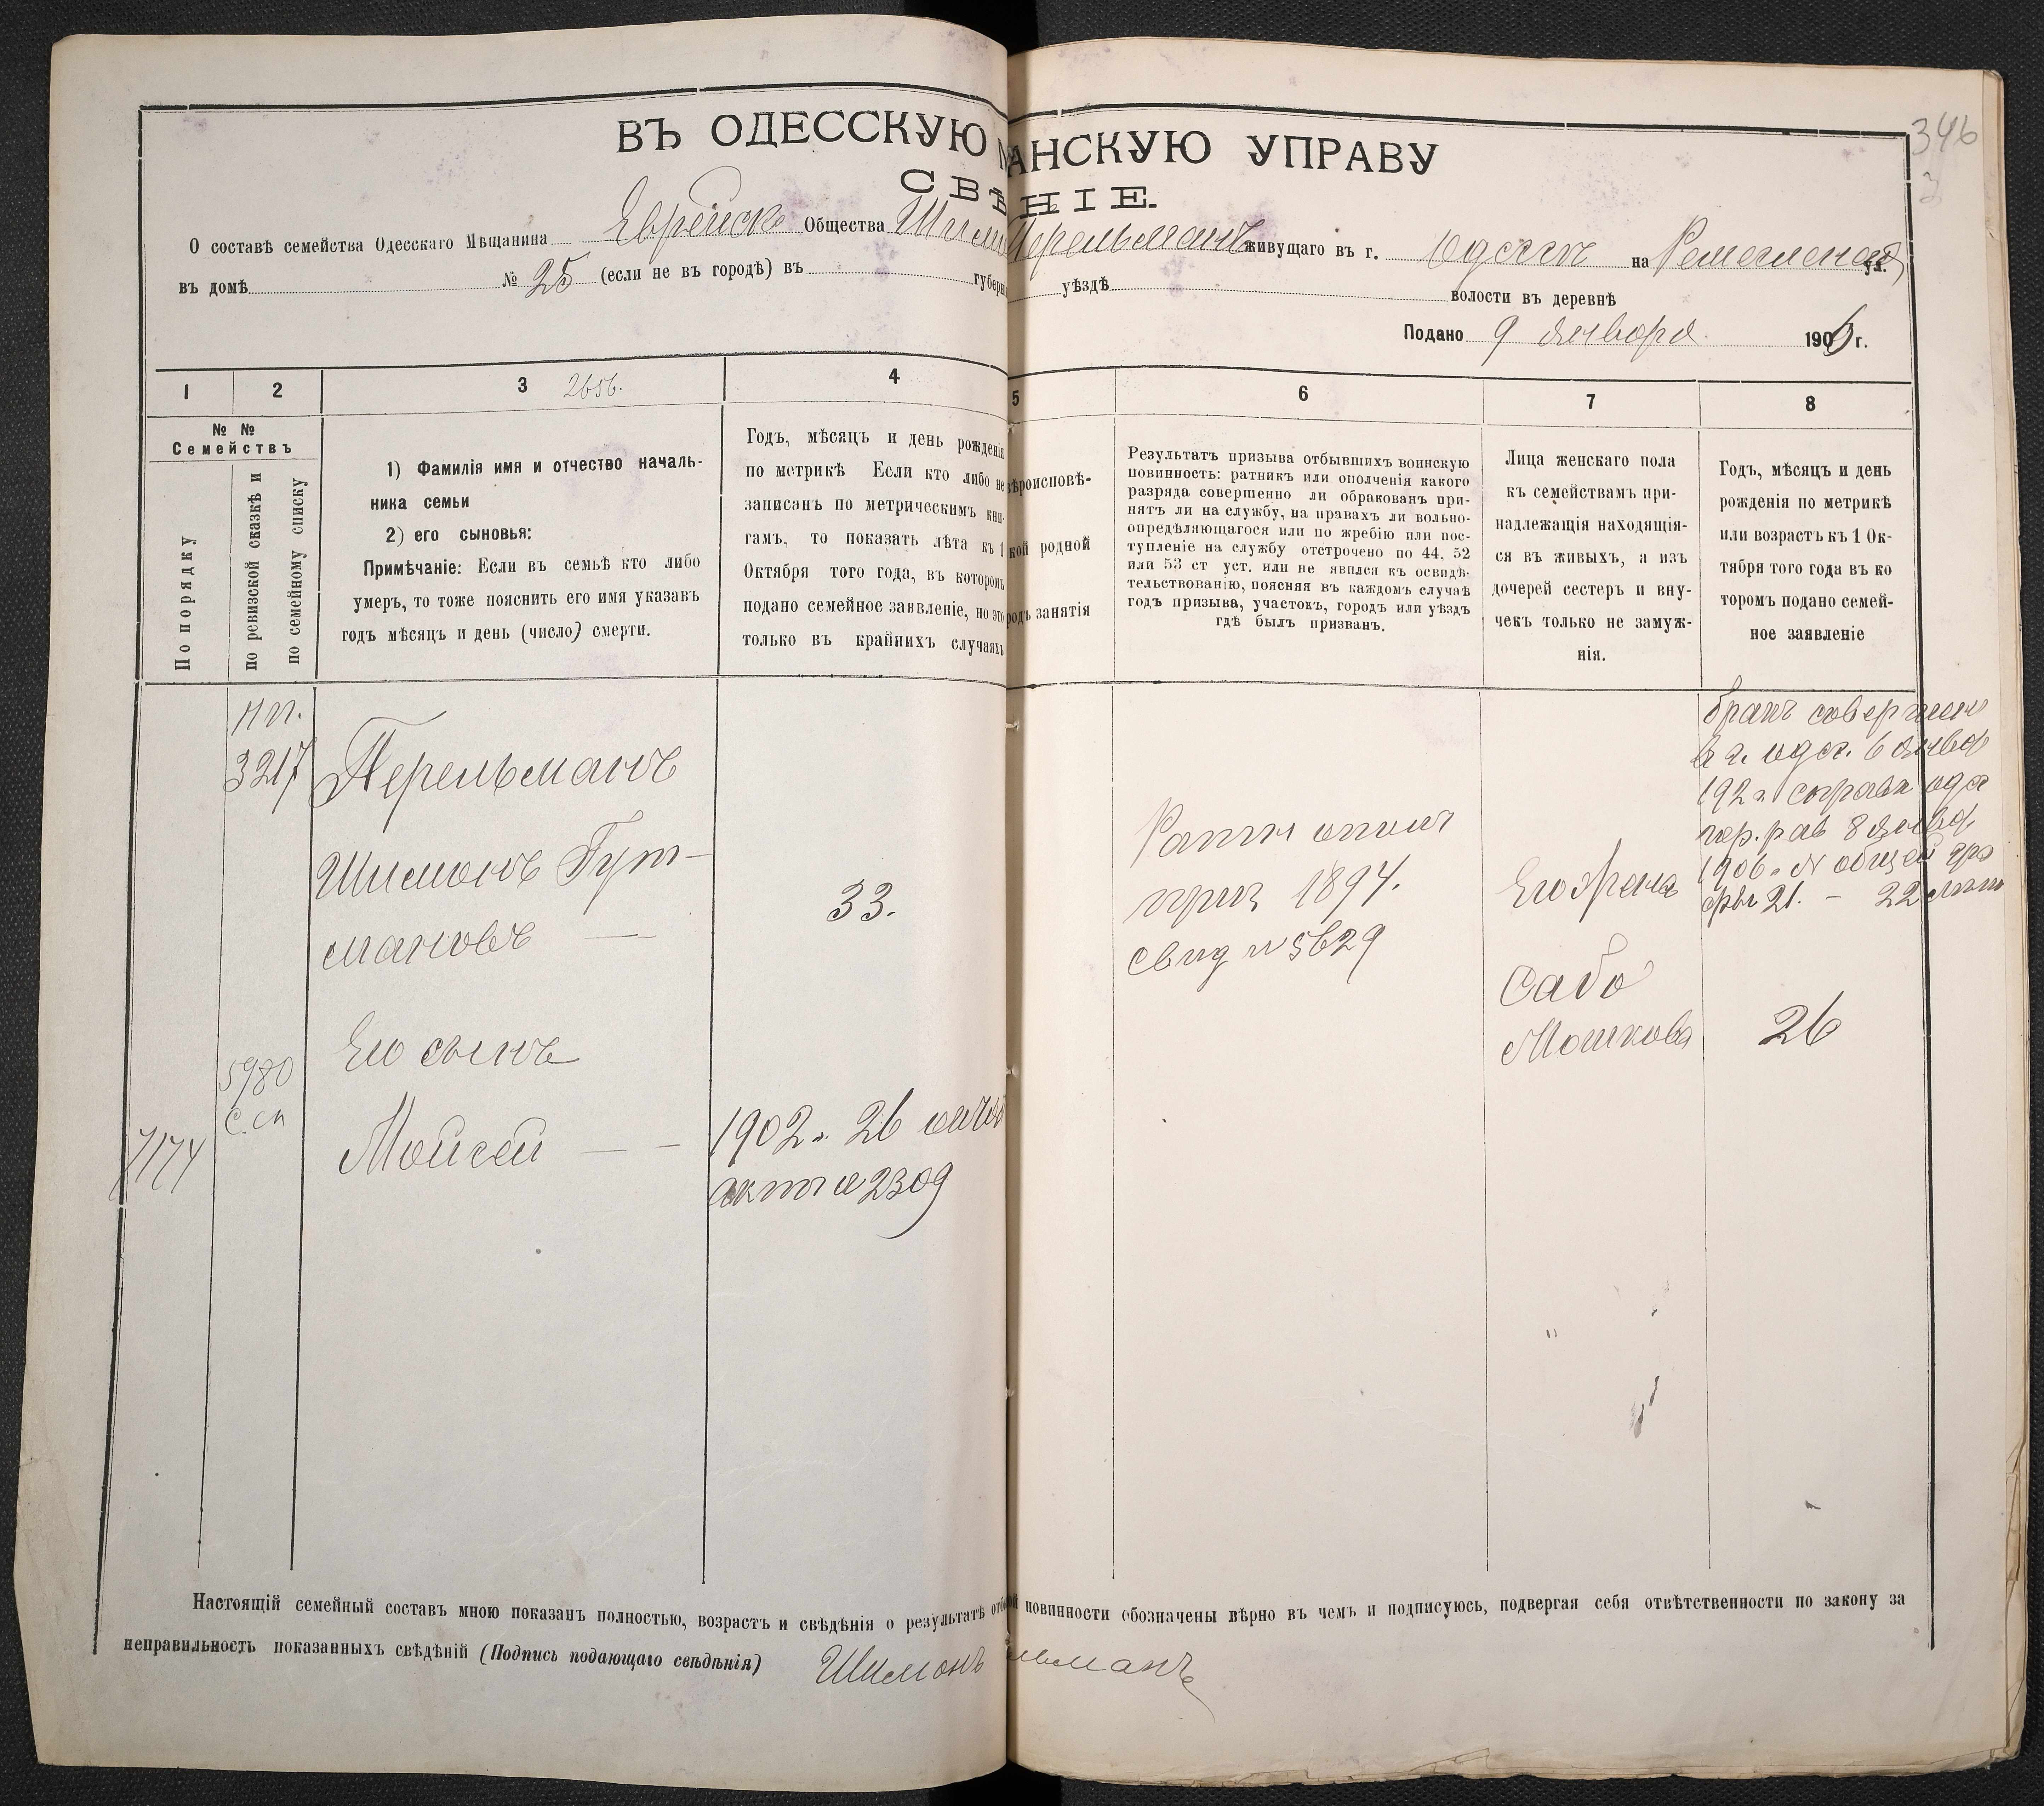 346
ВЪ ОДЕССКУЮ АНСКУЮ УПРАВУ
СВѢ НІЕ.
О составѣ семейства Одесскаго Мѣщанина Еврейск Общества Шим Перельманъ живущаго въ г. Одессѣ на Ремесленой ул.
въ домѣ № 25 (если не въ городѣ) въ губерн уѣздѣ волости въ деревнѣ
Подано 9 Января 1906 г.
1 2 3 2656. 4 5 6 7 8
№ №
Семействъ
По порядку
по ревизской сказкѣ и
по семейному списку
1) Фамилія имя и отчество началь-
ника семьи
2) его сыновья:
Примѣчаніе: Если въ семьѣ кто либо
умеръ, то тоже пояснить его имя указавъ
годъ мѣсяцъ и день (число) смерти.
Годъ, мѣсяцъ и день рожденія
по метрикѣ Если кто либо не
записанъ по метрическимъ кни-
гамъ, то показать лѣта къ 1
Октября того года, въ которомъ
подано семейное заявленіе, но это
только въ крайнихъ случаяхъ
вѣроисповѣ-
кой родной
родъ занятія
Результатъ призыва отбывшихъ воинскую
повинность: ратникъ или ополченія какого
разряда совершенно ли обракованъ при-
нятъ ли на службу, на правахъ ли вольно-
опредѣляющагося или по жребію или пос-
тупленіе на службу отстрочено по 44, 52
или 53 ст уст. или не явился къ освидѣ-
тельствованію, поясняя въ каждомъ случаѣ
годъ призыва, участокъ, городъ или уѣздъ
гдѣ былъ призванъ.
Лица женскаго пола
къ семействамъ при-
надлежащія находящія-
ся въ живыхъ, а изъ
дочерей сестеръ и вну-
чекъ только не замуж-
нія.
Годъ, мѣсяцъ и день
рожденія по метрикѣ
или возрастъ къ 1 Ок-
тября того года въ ко
торомъ подано семей-
ное заявленіе
3217
Перельманъ
Шимонъ Гут-
мановъ —
33.
Ратн ополч
приз 1894.
свид № 5629
Его жена
Сабо
Мошкова
бракъ соверш
в г. одес. 6 Январ
192 г. справк одес
гор. рав 8 Январ
1906 г. № общей гра
фы 21. — 22
26
5980
с. сп
7174
Его сынъ
Моисей — —
1902 г. 26
актъ № 2309
Настоящій семейный составъ мною показанъ полностью, возрастъ и свѣдѣнія о результатѣ отб ой повинности обозначены вѣрно въ чемъ и подписуюсь, подвергая себя отвѣтственности по закону за
неправильность показанныхъ свѣдѣній (Подпись подающаго свѣдѣнія) Шимонъ льманъ